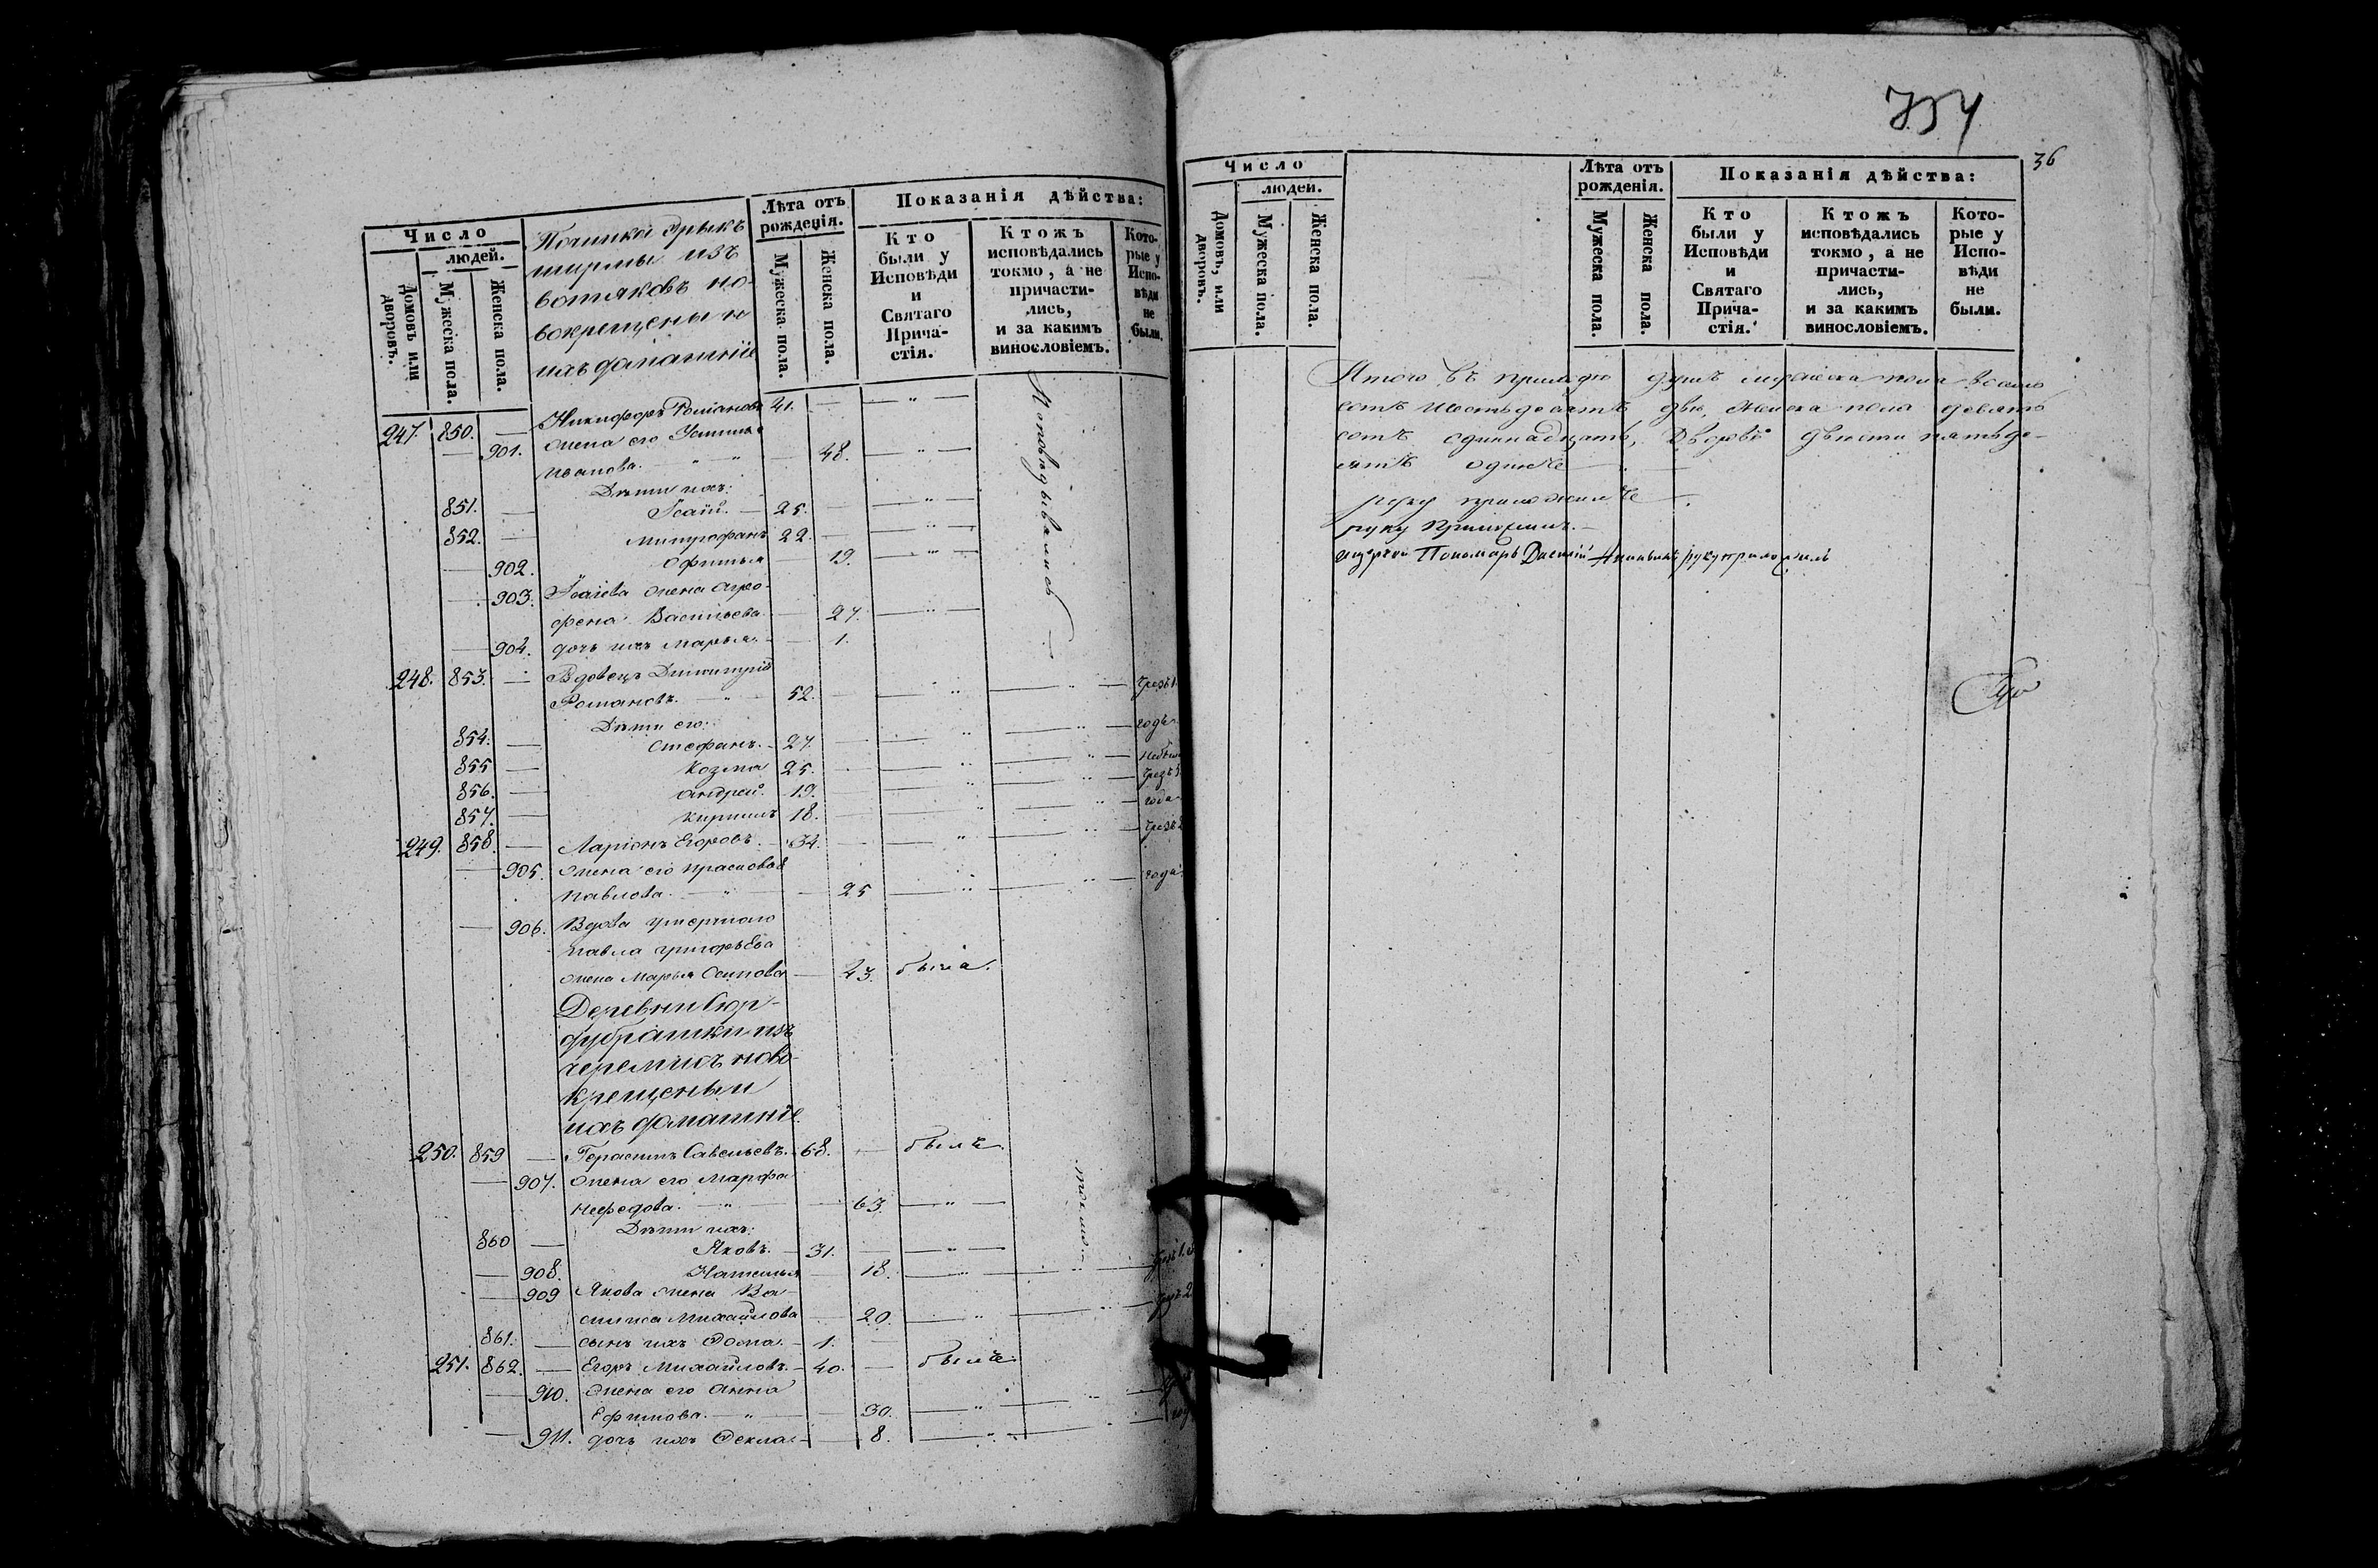 Число
людей.
Домовъ или дворовъ.
Мужеска пола.
Женска пола.
Починка
ширмы изъ
вотяковъ но-
вокрещены и
ихъ домашніе
Лѣта отъ рожденія.
Мужеска пола.
Женска пола.
Показанія дѣйства:
Кто были у Исповѣди и Святаго Прича- стія.
Ктожъ исповѣдались токмо, а не причасти- лись, и за какимъ винословіемъ.
Кото- рые у Испо- вѣди не были.
247. 850. — Никифоръ Романовъ 41. — — „ —
— 901. жена его Устинья
Иванова. — „ — — 48. — „ —
Дѣти ихъ:
851. — Ісаій. — 25. — — „ —
852. — Митрофанъ 22. — — „ —
— 902. Офимья — 19. — „ —
— 903. Ісаіева жена Агро-
фена Васильева. — 27. — „ —
— 904. дочь ихъ Марья. — — 1.
248. 853. — Вдовецъ Димитрій
Романовъ. — „ — 52. — — „ — — „ — Чрезъ 1.
Дѣти его: годъ
854. — Стефанъ. — 27. — — „ — — „ —
855 — Козма 25. — — „ — — „ —
856. — Андрей. — 19. — — „ — — „ — Чрезъ
857. — Кирилъ 18. — — „ — — „ — года
249. 858. — Ларіонъ Егоровъ. — 34. — — „ — — „ — Чрезъ 2
— 905. жена его Прасковья
Павлова. — „ — — 25 — „ — — „ — года.
— 906. Вдова умершаго
Павла Григорьева
жена Марья Осипова — 23. была.
Деревни Кюр-
дубрашки изъ
черемисъ ново-
крещены и
ихъ домашніе.
250. 859 — Герасимъ Савельевъ. — 68. — былъ
— 907. жена его Марфа
Нефедова. — „ — — 63. — „ —
Дѣти ихъ:
860 — Яковъ. — 31. — — „ —
— 908. Наталья — 18. — „ — — „ — Чрезъ 1.
— 909 Якова жена Ва-
силиса Михайлова — 20. — „ — — „ — Чрезъ 2
861. — сынъ ихъ Фома. — 1.
251. 862. — Егоръ Михайловъ. — 40. — былъ
— 910. жена его Анна
Ефимова. — „ — — 30. — „ — — „ —
— 911. дочь ихъ Фекла. — — 8. — „ —
36
Число
людей.
Домовъ, или дворовъ.
Мужеска пола.
Женска пола.
Лѣта отъ рожденія.
Мужеска пола.
Женска пола.
Показанія дѣйства:
Кто были у Исповѣди и Святаго Прича- стія.
Ктожъ исповѣдались токмо, а не причасти- лись, и за какимъ винословіемъ.
Кото- рые у Испо- вѣди не были.
Итого въ приходѣ душъ мужеска пола восемь
сотъ шестьдесятъ двѣ, женска пола девять
сотъ одиннадцать, дворовъ двѣсти пятьде-
сятъ одинъ
руку приложилъ
руку приложилъ.
Пономарь Василій руку приложилъ